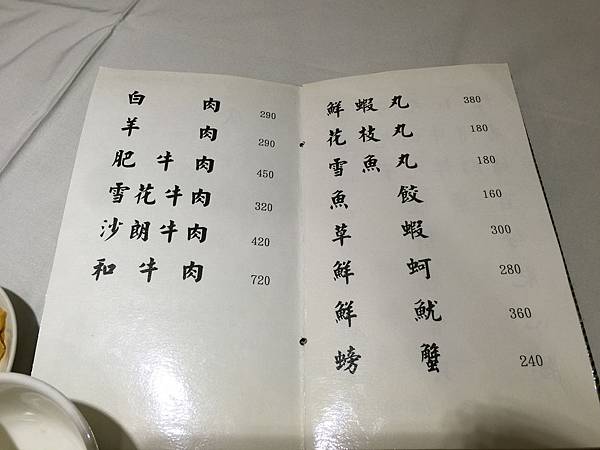 白肉 290
羊肉 290
肥牛肉 450
雪花牛肉 320
沙朗牛肉 420
和牛肉 720
鮮蝦丸 380
花枝丸 180
雪魚丸 180
魚餃 160
草蝦 300
鮮蚵 280
鮮魷 360
螃蟹 240